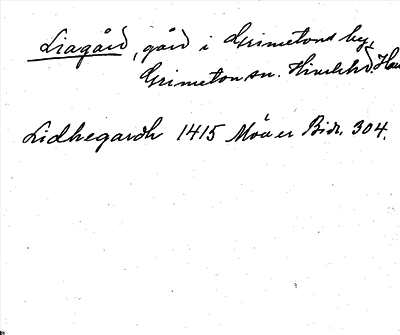 Liagård, gård i Grimetons by,
Grimeton sn. Himlehd. Hall
Lidhegardh 1415 Möller Bidr. 304.